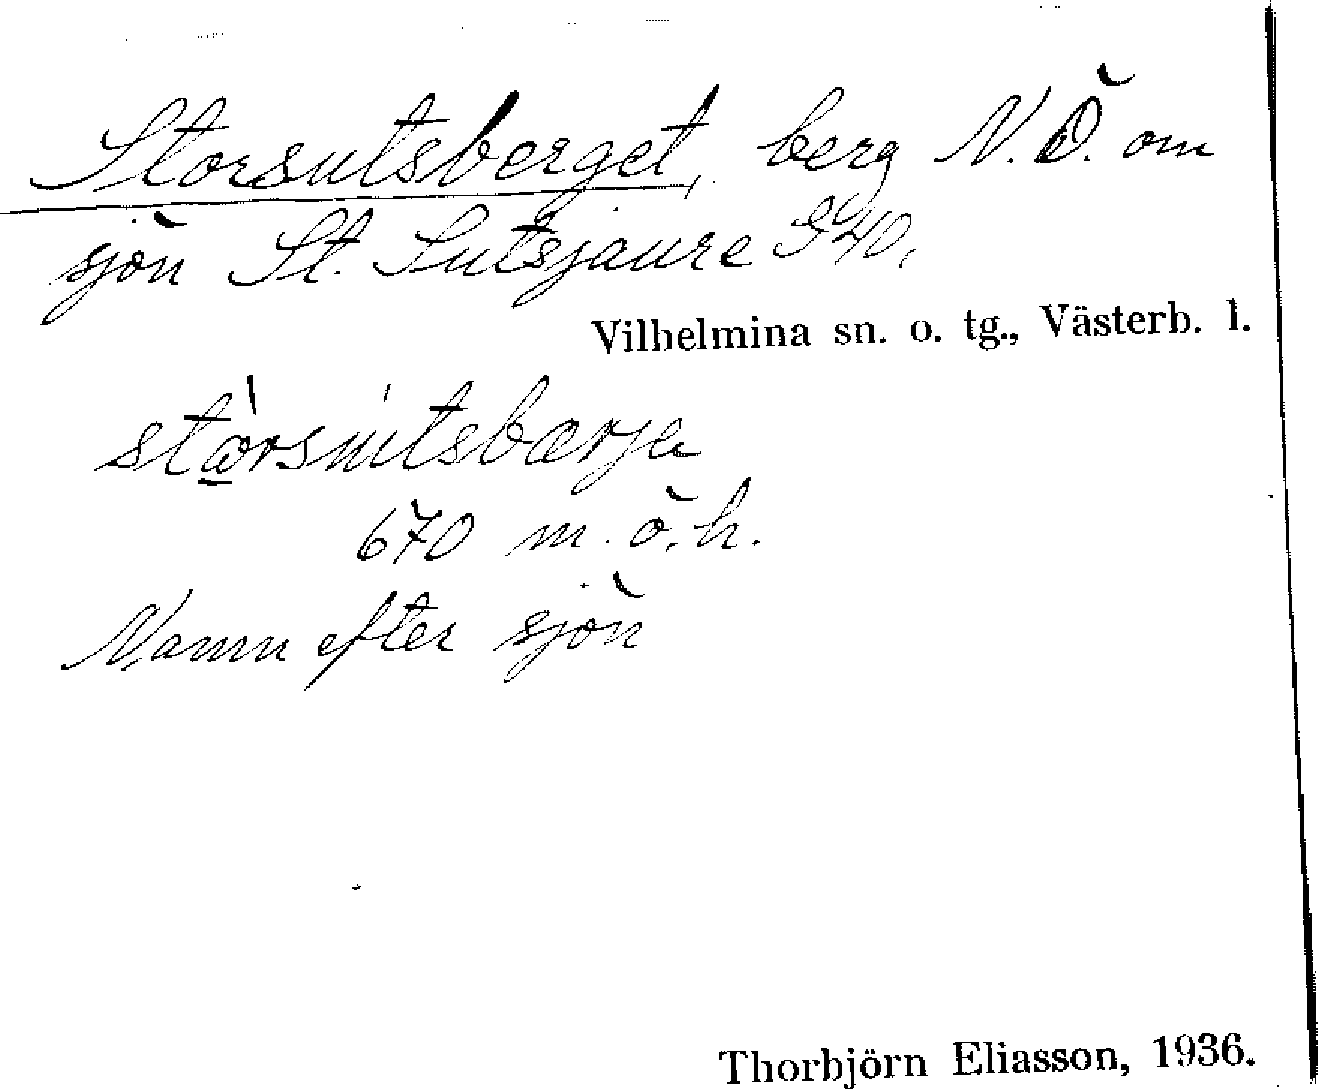 Storsutsberget, berg N.Ö. om
sjön St. Sutsjaure G40,
Vilhelmina sn. o. tg., Västerb. l.
670 m. ö. h.
Namn efter sjön
Thorbjörn Eliasson, 1936.